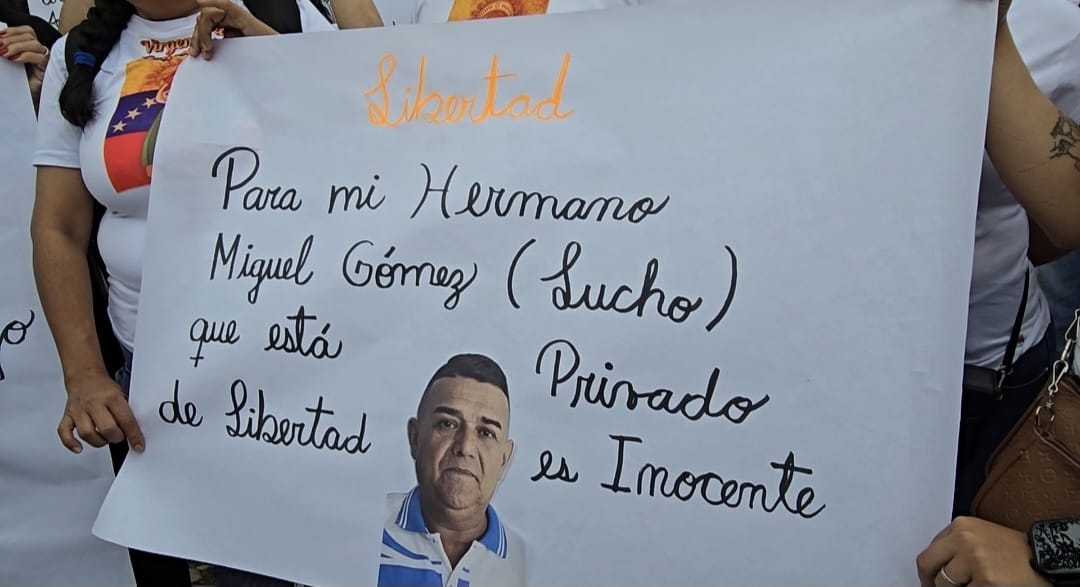 Libertad
Para mi Hermano
Miguel Gómez (Lucho)
que está Privado
de Libertad es Inocente
Virgen